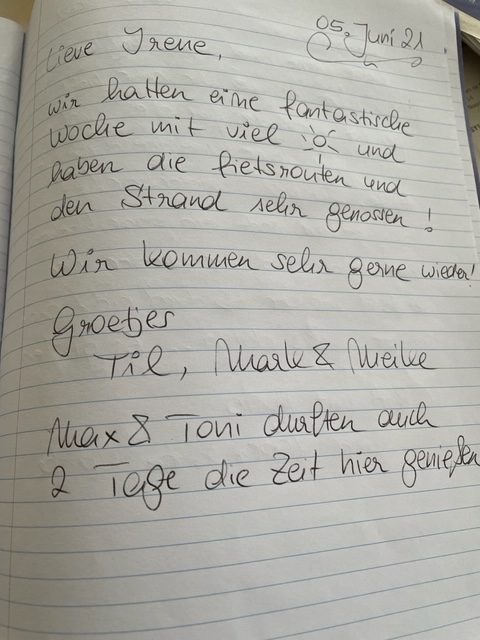 05. Juni 21
Lieve Irene,
wir hatten eine fantastische
woche mit viel ☼ und
haben die fietsrouten und
den Strand sehr genossen!
Wir kommen sehr gerne wieder!
Groetjes
Til, Mark & Meike
Max & Toni durften auch
2 Tage die Zeit hier genießen